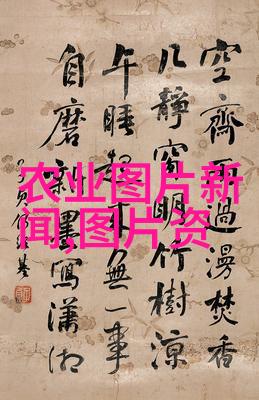 空齋雨過漫焚香
几靜窗明竹樹涼
午睡起來無一事
自磨新墨寫瀟湘
农业图片新
闻,图片资